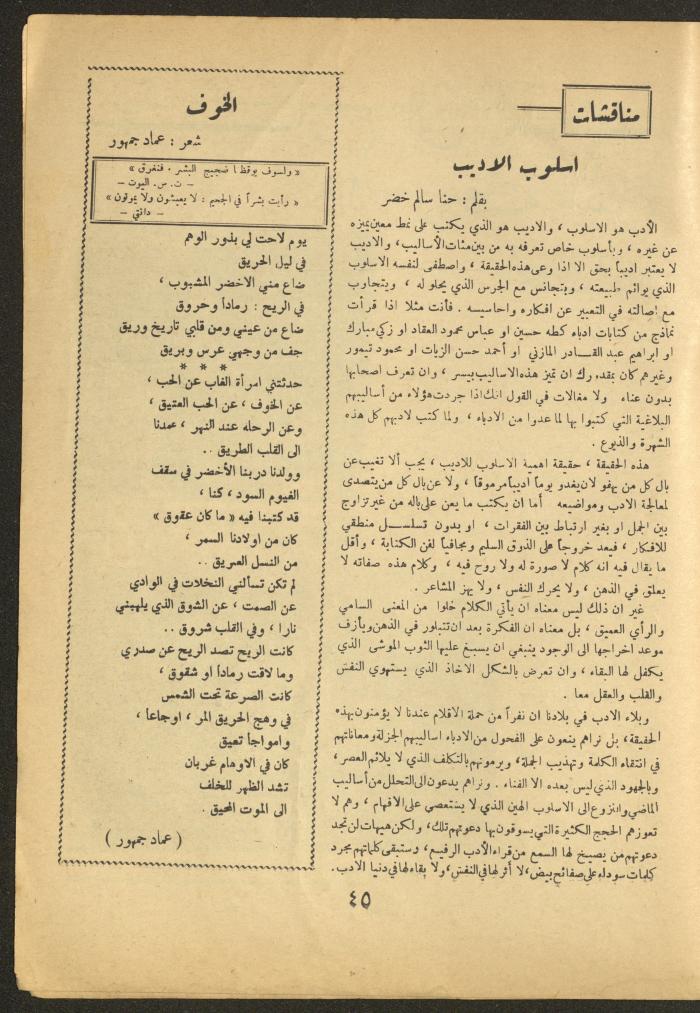 مناقشات
اسلوب الاديب
بقلم : حنا سالم خضر
الأدب هو الاسلوب ، والاديب هو الذي يكتب على نمط معين يميزه
عن غيره ، وبأسلوب خاص تعرفه به من بين مئات الأساليب، والاديب
لا يعتبر اديباً بحق الا اذا وعى هذه الحقيقة ، واصطفى لنفسه الاسلوب
الذي يوائم طبيعته ، ويتجانس مع الجرس الذي يحلو له ، ويتجارب
مع إصالته في التعبير عن افكاره واحاسيسه . فأنت مثلا اذا قرأت
نماذج من كتابات ادباء كطه حسين او عباس محمود العقاد او زكي مبارك
او ابراهيم عبد القـــادر المازني او أحمد حسن الزيات او محمود تيمور
وغيرهم كان بمقدورك ان تميز هذه الاساليب بيسر ، وان تعرف اصحابها
بدون عناء ولا مغالات في القول انك اذا جردت هؤلاء من أساليبهم
البلاغية التي كتبوا بها لما عدوا من الادباء ، ولما كتب لادبهم كل هذه
الشهرة والذيوع .
هذه الحقيقة ، حقيقة اهمية الاسلوب للاديب ، يجب ألا تغيب عن
بال كل من يهفو لان يغدو يوماً أديباً مرموقاً ، ولا عن بال كل من يتصدى
لمعالجة الادب ومواضيعه أما ان يكتب ما يعن على باله من غير تزاوج
بين الجمل او بغير ارتباط بين الفقرات ، او بدون تسلســل منطقي
للافكار ، فيعد خروجاً على الذوق السليم ومجافياً لفن الكتابة ، وأقل
ما يقال فيه انه كلام لا صورة له ولا روح فيه ، وكلام هذه صفاته لا
يعلق في الذهن ، ولا يحرك النفس ، ولا يهز المشاعر .
غير ان ذلك ليس معناه ان يأتي الكلام خلوا من المعنى السامي
والرأي العميق ، بل معناه ان الفكرة بعد ان تتبلور في الذهن ويأزف
موعد اخراجها الى الوجود ينبغي ان يسبغ عليها الثوب الموشى الذي
يكفل لها البقاء ، وان تعرض بالشكل الاخاذ الذي يستهوي النفس
والقلب والعقل معا .
وبلاء الادب في بلادنا ان نفراً من حملة الاقلام عندنا لا يؤمنون بهذه
الحقيقة، بل نراهم ينعون على الفحول من الادباء اساليبهم الجزلة ومعاناتهم
في انتقاء الكلمة وتهذيب الجملة، ويرمونهم بالتكلف الذي لا يلائم العصر،
وبالجهود الذي ليس بعده الا الفناء . ونراهم يدعون الى التحلل من أساليب
الماضي والنزوع الى الاسلوب الهين الذي لا يستعصي على الافهام ، وهم لا
تعوزهم الحجج الكثيرة التي يسوقون بها دعوتهم تلك، ولكن هيهات لن تجد
دعوتهم من يصيخ لها السمع من قراء الأدب الرفيع، وستبقى كلماتهم مجرد
كلمات سوداء على صفائح بيض، لا أثر لها في النفس، ولا بقاء لها في دنيا الادب.
الخوف
شعر : عماد جمهور
« ولسوف يوقظنا ضجيج البشر . فنغرق »
– ت. س. اليوت –
« رأيت بشراً في الجحيم : لا يعيشون ولا يموتون »
– دانتي –
يوم لاحت لي بذور الوهم
في ليل الحريق
ضاع مني الاخضر المشبوب ،
في الريح : رماداً وحروق
ضاع من عيني ومن قلبي تاريخ وريق
جف من وجهي عرس وبريق
* * *
حدثتني امرأة الغاب عن الحب ،
عن الخوف ، عن الحب العتيق ،
وعن الرحله عند النهر ، عمدنا
الى القلب الطريق ..
وولدنا دربنا الأخضر في سقف
الغيوم السود ، كنا ،
قد كتبنا فيه « ما كان عقوق »
كان من اولادنا السمر ،
من النسل العريق ..
لم تكن تسألني النخلات في الوادي
عن الصمت ، عن الشوق الذي يلهبني
نارا ، وفي القلب شروق ..
كانت الريح تصد الريح عن صدري
وما لاقت رماداً او شقوق ،
كانت الصرعة تحت الشمس
في وهج الحريق المر ، اوجاعا ،
وامواجاً تعيق
كان في الاوهام غربان
تشد الظهر للخلف
الى الموت المحيق .
( عماد جمهور )
٤٥